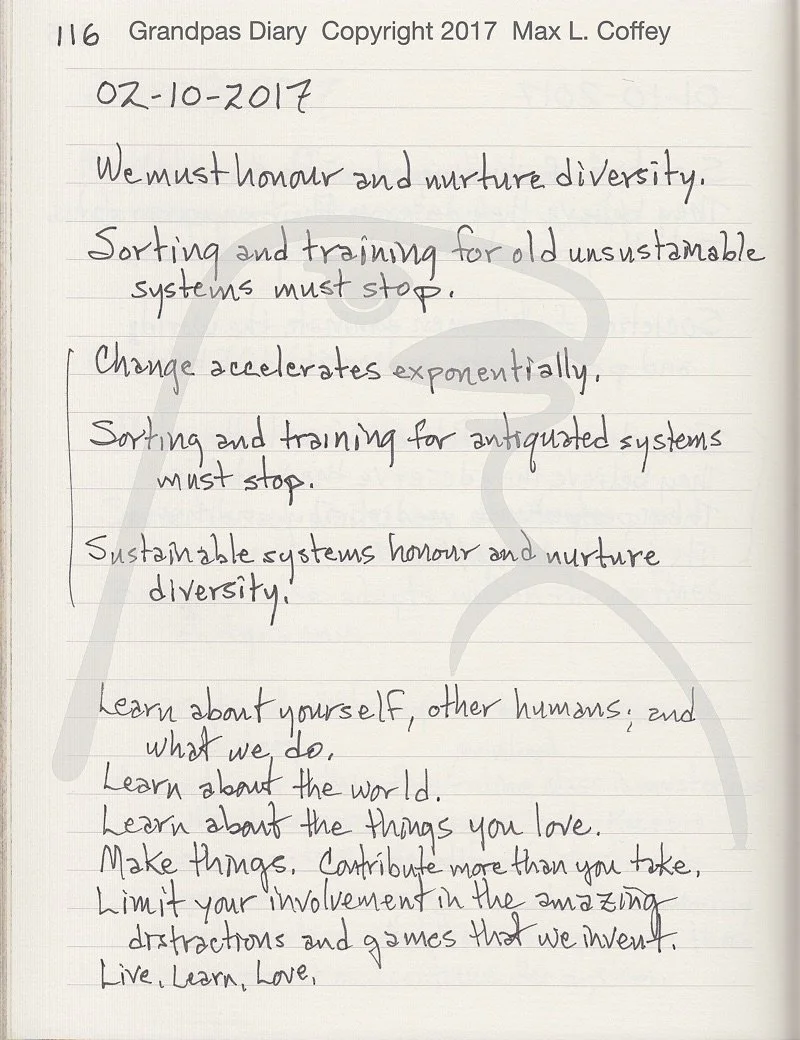 116 Grandpas Diary Copyright 2017 Max L. Coffey
02-10-2017
We must honour and nurture diversity.
Sorting and training for old unsustainable
systems must stop.
Change accelerates exponentially.
Sorting and training for antiquated systems
must stop.
Sustainable systems honour and nurture
diversity.
Learn about yourself, other humans; and
what we do.
Learn about the world.
Learn about the things you love.
Make things. Contribute more than you take.
Limit your involvement in the amazing
distractions and games that we invent.
Live, Learn, Love,